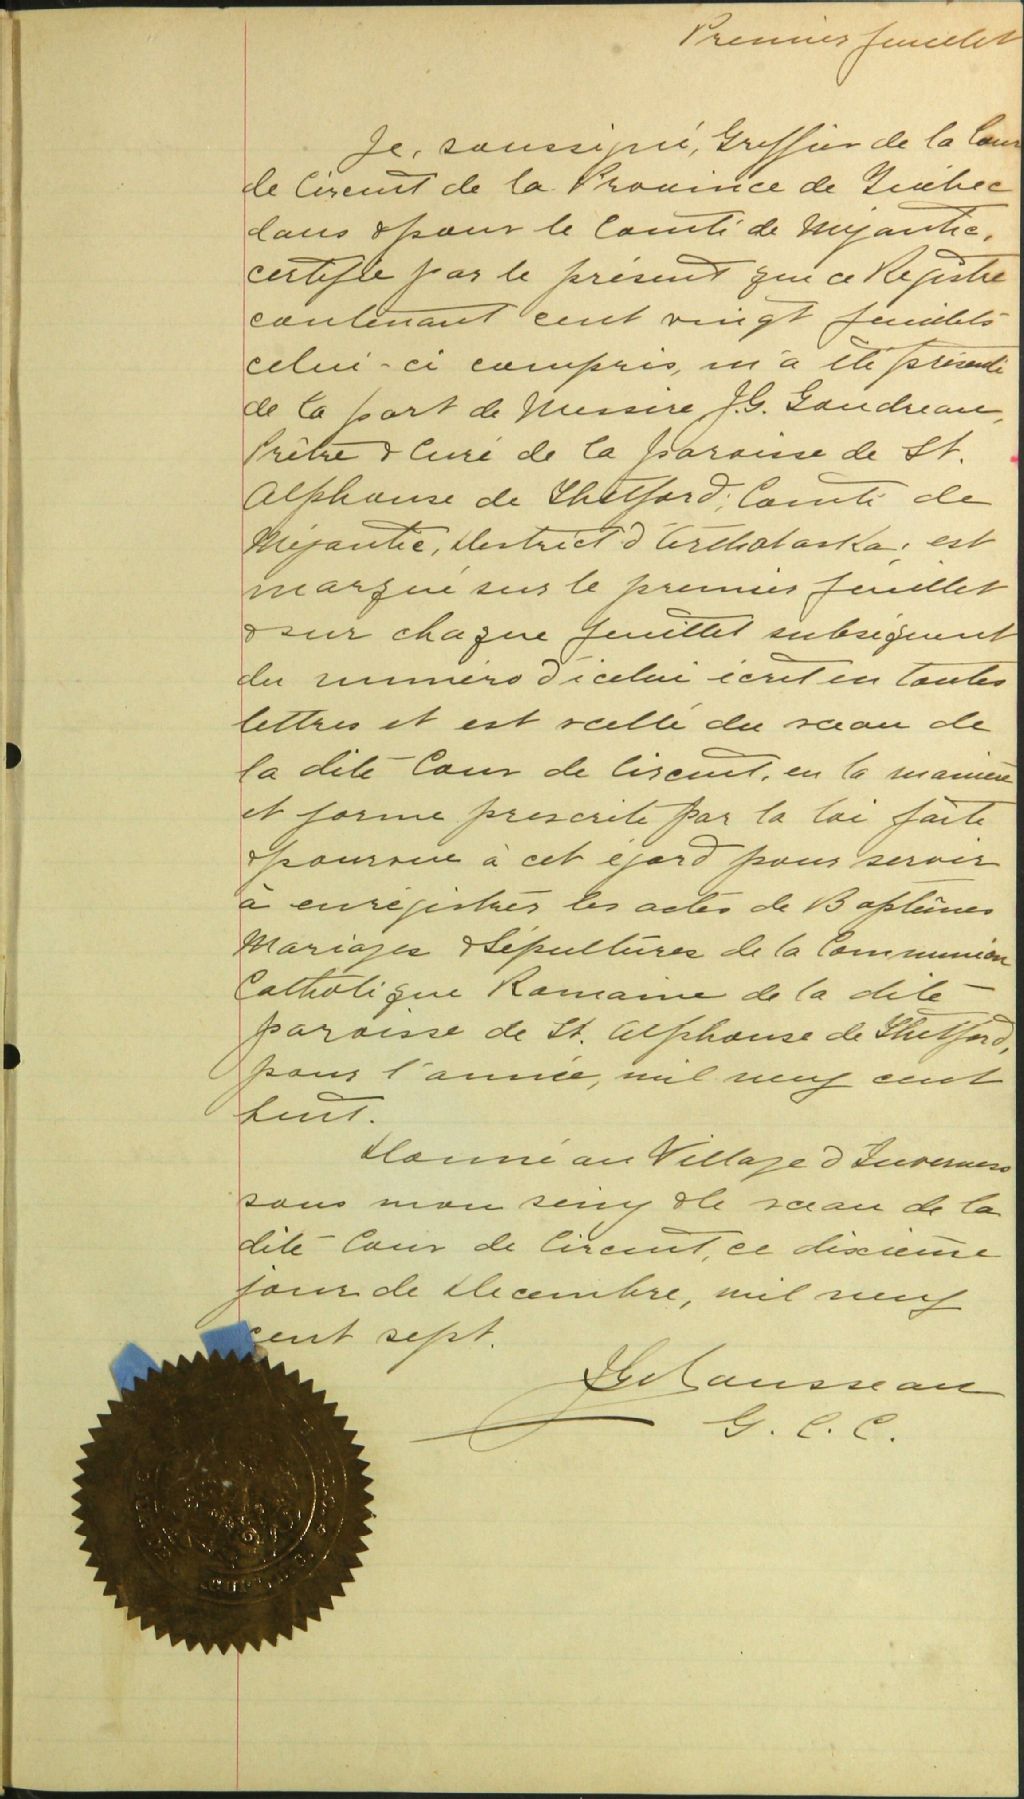 Premier feuillet
Je, soussigné, Greffier de la Cour
de Circuit de la Province de Québec
dans & pour le Comté de Mégantic,
certifie par le présent que ce Régistre
contenant cent vingt feuillets
celui-ci compris, m'a été présenté
de la part de Messire J.G. Goudreau,
Prêtre & Curé de la paroisse de St.
Alphonse de Thetford, Comté de
Mégantic, District d'Arthabaska, est
marqué sur le premier feuillet
& sur chaque feuillet subséquent
du numéro d'icelui écrit en toutes
lettres et est scellé du sceau de
la dite Cour de Circuit, en la manière
et forme prescrite par la loi faite
& pourvue à cet égard pour servir
à enrégistrer les actes de Baptêmes
Mariages & Sépultures de la Communion
Catholique Romaine de la dite
paroisse de St. Alphonse de Thetford,
pour l'année, mil neuf cent
huit.
Donné au Village d'Inverness
sous mon seing & le sceau de la
dite Cour de Circuit, ce dixième
jour de Decembre, mil neuf
cent sept.
Rousseau
G. C. C.